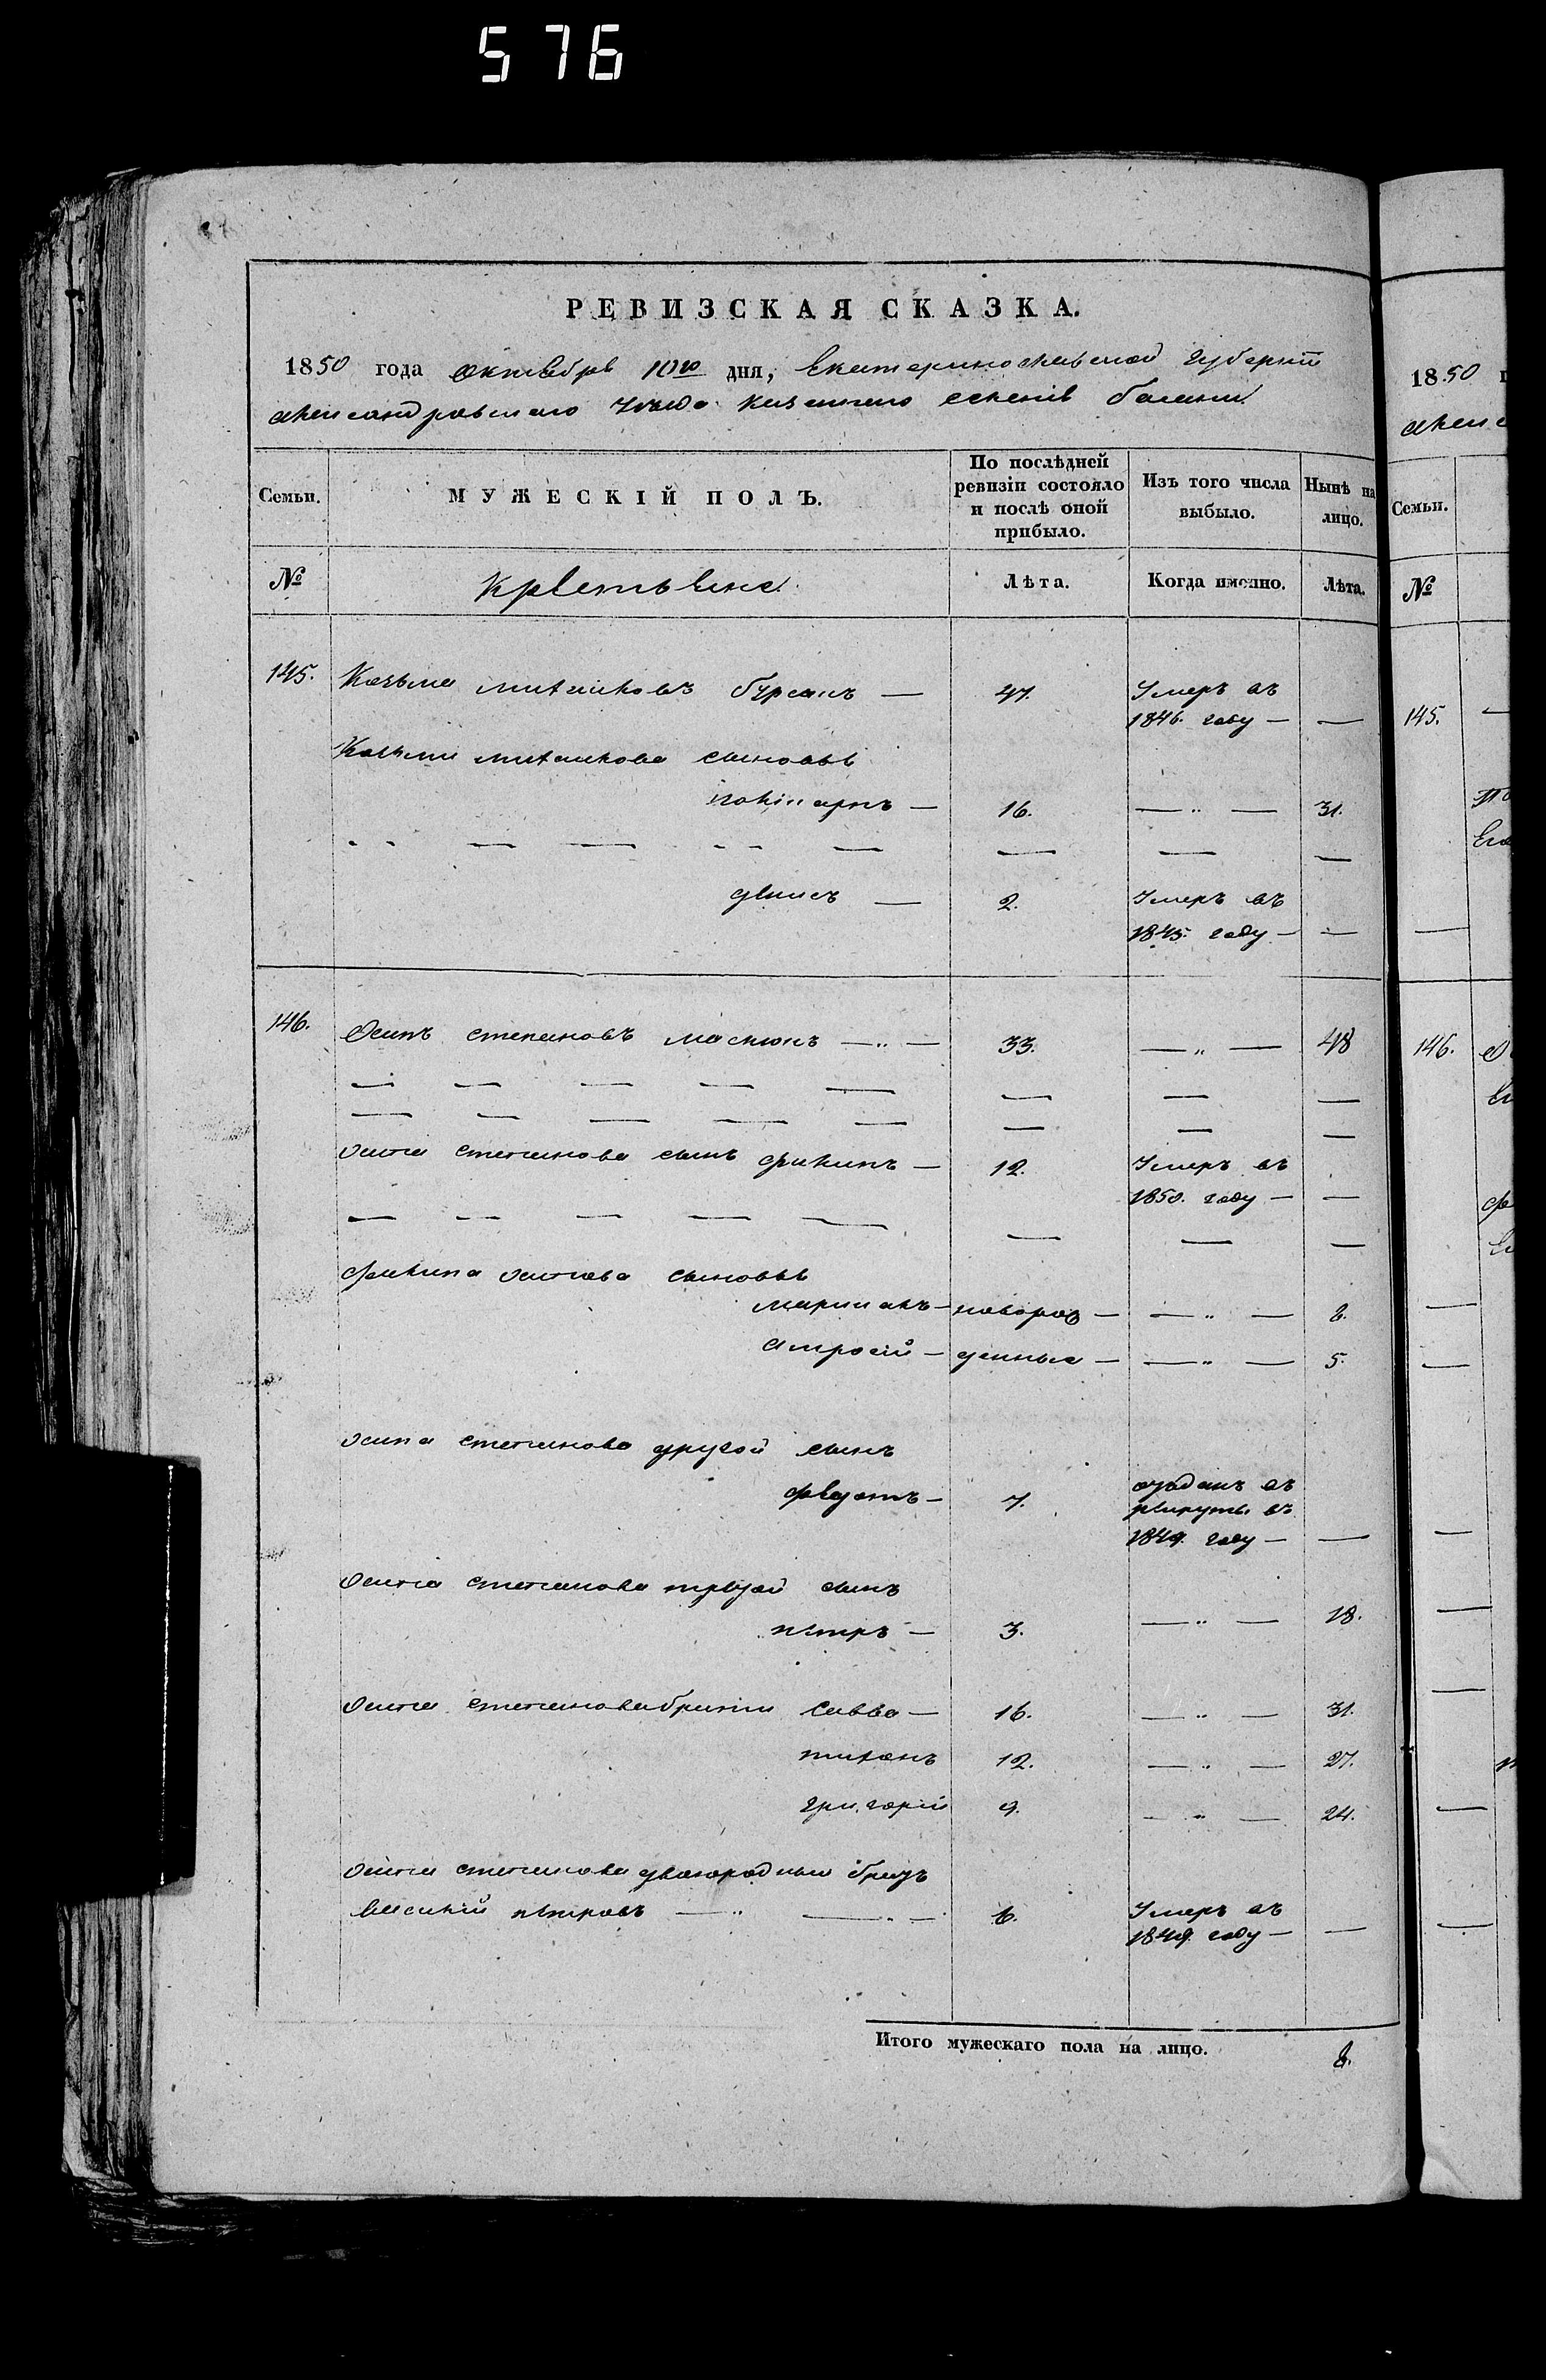 576
РЕВИЗСКАЯ СКАЗКА.
1850 года октября 10го дня, Екатеринославской губерніи
александровскаго уѣзда казеннаго селенія балки
Семьи. МУЖЕСКІЙ ПОЛЪ. По послѣдней ревизіи состояло и послѣ оной прибыло. Изъ того числа выбыло. Нынѣ на лицо.
№ Крестьяне Лѣта. Когда именно. Лѣта.
145. Козьма михайловъ — 47. Умеръ въ
1846. году — —
Козьмы михайлова сыновья
поликарпъ — 16. — „ — 31.
денисъ — 2. Умеръ въ
1845. году — —
146. Осипъ степановъ — „ — 33. — „ — 48
осипа степанова сынъ филипъ — 12. Умеръ въ
1850. году — —
филипа осипова сыновья
— новорож — — „ — 8.
— денные — — „ — 5.
осипа степанова другой сынъ
федотъ — 7. отданъ въ
рекруты въ
1849. году — —
осипа степанова третій сынъ
петръ — 3. — „ — 18.
осипа степанова братья савва — 16. — „ — 31.
тихонъ 12. — „ — 27.
григорій 9. — „ — 24.
осипа степанова двоюродный братъ
василій петровъ — „ — „ — 6. Умеръ въ
1849. году — —
Итого мужескаго пола на лицо. 8.
1850
Семьи.
№
145.
146.